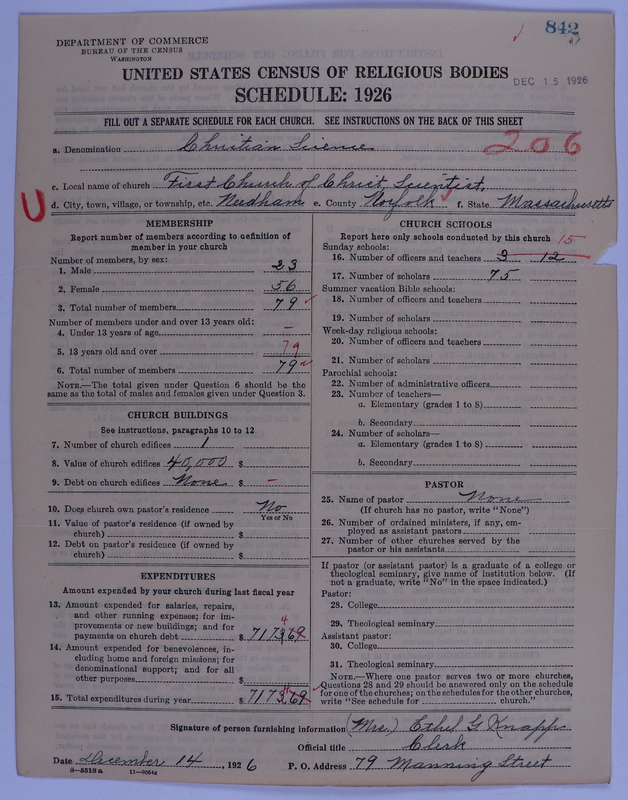 842
DEPARTMENT OF COMMERCE
BUREAU OF THE CENSUS
WASHINGTON
UNITED STATES CENSUS OF RELIGIOUS BODIES
DEC 15 1926
SCHEDULE: 1926
FILL OUT A SEPARATE SCHEDULE FOR EACH CHURCH. SEE INSTRUCTIONS ON THE BACK OF THIS SHEET
a. Denomination Christian Science
206
c. Local name of church First Church of Christ, Scientist,
U
d. City, town, village, or township, etc. Needham e. County Norfolk f. State Massachusetts
MEMBERSHIP
Report number of members according to definition of
member in your church
Number of members, by sex:
1. Male 23
2. Female 56
3. Total number of members 79
Number of members under and over 13 years old:
4. Under 13 years of age –
5. 13 years old and over 79
6. Total number of members 79
NOTE.—The total given under Question 6 should be the
same as the total of males and females given under Question 3.
CHURCH BUILDINGS
See instructions, paragraphs 10 to 12
7. Number of church edifices 1
8. Value of church edifices 40,000 $
9. Debt on church edifices None $ –
10. Does church own pastor's residence No
Yes or No
11. Value of pastor's residence (if owned by
church) $
12. Debt on pastor's residence (if owned by
church) $
EXPENDITURES
Amount expended by your church during last fiscal year
13. Amount expended for salaries, repairs,
and other running expenses; for im-
provements or new buildings; and for
4
payments on church debt $ 7173.69
14. Amount expended for benevolences, in-
cluding home and foreign missions; for
denominational support; and for all
other purposes $
15. Total expenditures during year $ 7173.69
CHURCH SCHOOLS
Report here only schools conducted by this church 15
Sunday schools:
16. Number of officers and teachers 3 12
17. Number of scholars 75
Summer vacation Bible schools:
18. Number of officers and teachers
19. Number of scholars
Week-day religious schools:
20. Number of officers and teachers
21. Number of scholars
Parochial schools:
22. Number of administrative officers
23. Number of teachers—
a. Elementary (grades 1 to 8)
b. Secondary
24. Number of scholars—
a. Elementary (grades 1 to 8)
b. Secondary
PASTOR
25. Name of pastor None
(If church has no pastor, write "None")
26. Number of ordained ministers, if any, em-
ployed as assistant pastors
27. Number of other churches served by the
pastor or his assistants
If pastor (or assistant pastor) is a graduate of a college or
theological seminary, give name of institution below. (If
not a graduate, write "No" in the space indicated.)
Pastor:
28. College
29. Theological seminary
Assistant pastor:
30. College
31. Theological seminary
NOTE.—Where one pastor serves two or more churches,
Questions 28 and 29 should be answered only on the schedule
for one of the churches; on the schedules for the other churches,
write "See schedule for church."
Signature of person furnishing information (Mrs.) Ethel G Knapp
Official title Clerk
Date December 14, 1926 P. O. Address 79 Manning Street
8—5518 a 11—9054a